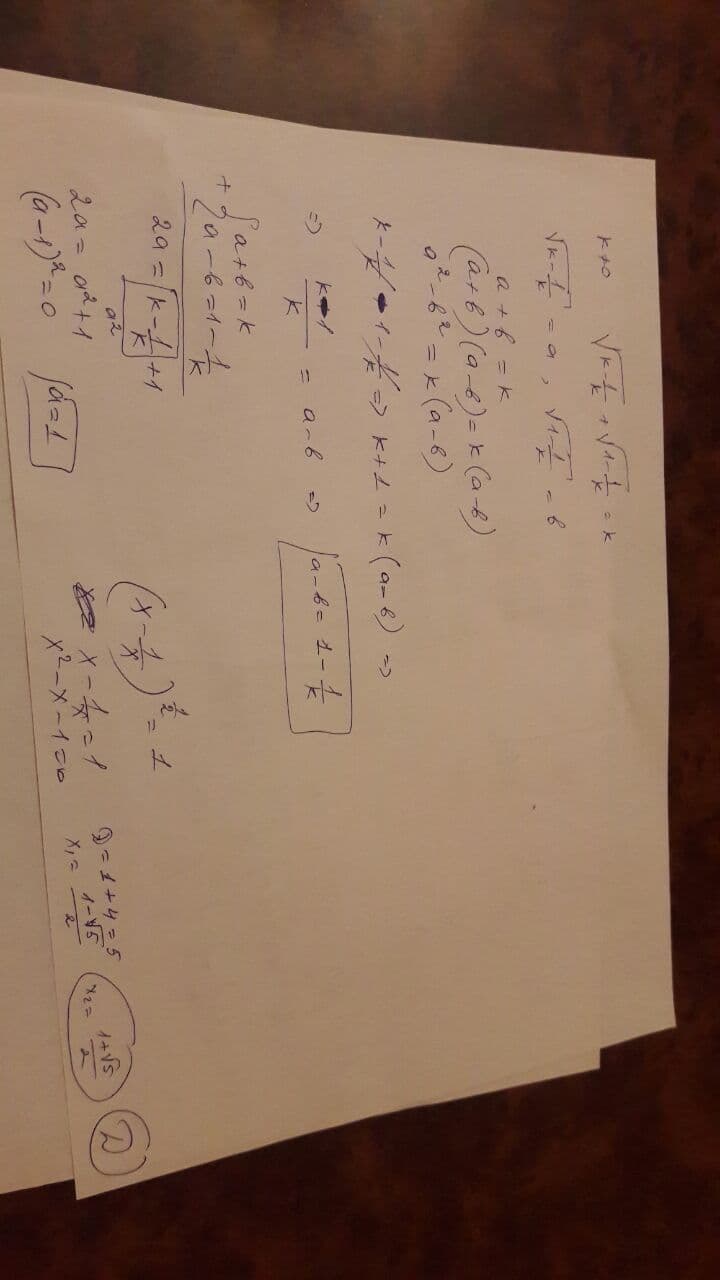 k≠0 √(k-1/k) + √(1-1/k) = k
√(k-1/k) = a, √(1-1/k) = b
a+b=k
(a+b)(a-b)=k(a-b)
a²-b²=k(a-b)
k-1/k - 1-1/k => k+1=k(a-b) =>
=> k-1/k = a-b => a-b=1-1/k
+ { a+b=k
a-b=1-1/k
2a = k-1/k +1
a²
2a=a²+1
(a-1)²=0 a=1
(x-1/x)^(1/2) = 1
x-1/x=1
x²-x-1=0
D=1+4=5
x₁= (1-√5)/2 x₂= (1+√5)/2
D